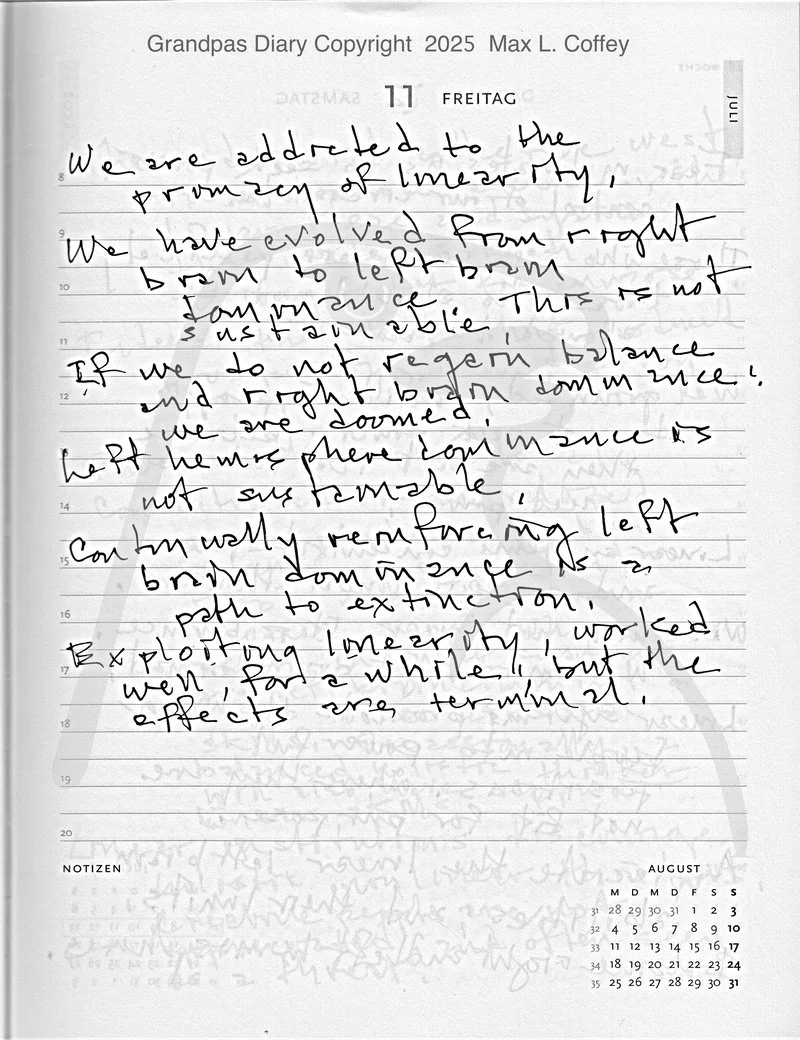 Grandpas Diary Copyright 2025 Max L. Coffey
11 FREITAG
JULI
We are addicted to the
8
primacy of linearity,
9
We have evolved from right
brain to left brain
10
dominance. This is not
11
sustainable,
If we do not regain balance
12
and right brain dominance,
we are doomed,
Left hemisphere dominance is
not sustainable,
14
Continually reinforcing left
15
brain dominance is a
16
path to extinction.
Exploiting linearity, worked
17
well, for a while, but the
effects are terminal.
18
19
20
NOTIZEN
AUGUST
M D M D F S S
31 28 29 30 31 1 2 3
32 4 5 6 7 8 9 10
33 11 12 13 14 15 16 17
34 18 19 20 21 22 23 24
35 25 26 27 28 29 30 31